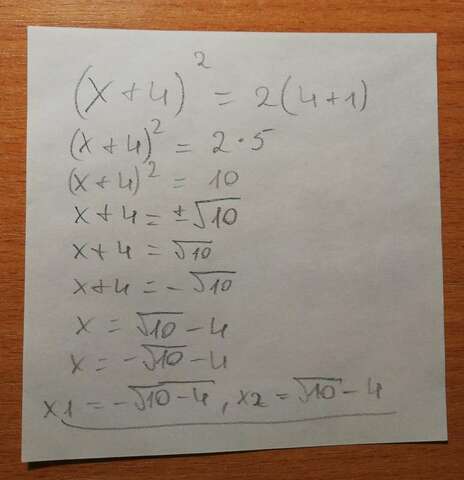 (x+4)² = 2(4+1)
(x+4)² = 2·5
(x+4)² = 10
x+4 = ±√10
x+4 = √10
x+4 = -√10
x = √10 - 4
x = -√10 - 4
x1 = -√(10-4), x2 = √10 - 4